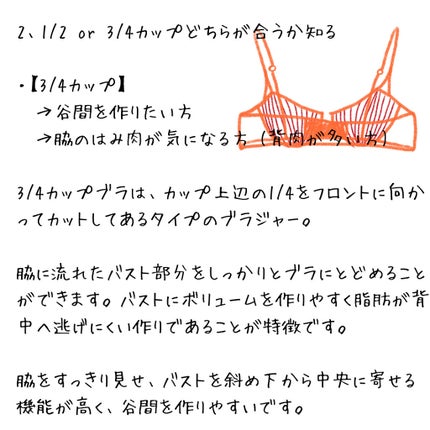 2、1/2 or 3/4カップどちらが合うか知る
・【3/4カップ】
→谷間を作りたい方
→脇のはみ肉が気になる方(背肉が多い方)
3/4カップブラは、カップ上辺の1/4をフロントに向か
ってカットしてあるタイプのブラジャー。
脇に流れたバスト部分をしっかりとブラにとどめること
ができます。バストにボリュームを作りやすく脂肪が背
中へ逃げにくい作りであることが特徴です。
脇をすっきり見せ、バストを斜め下から中央に寄せる
機能が高く、谷間を作りやすいです。